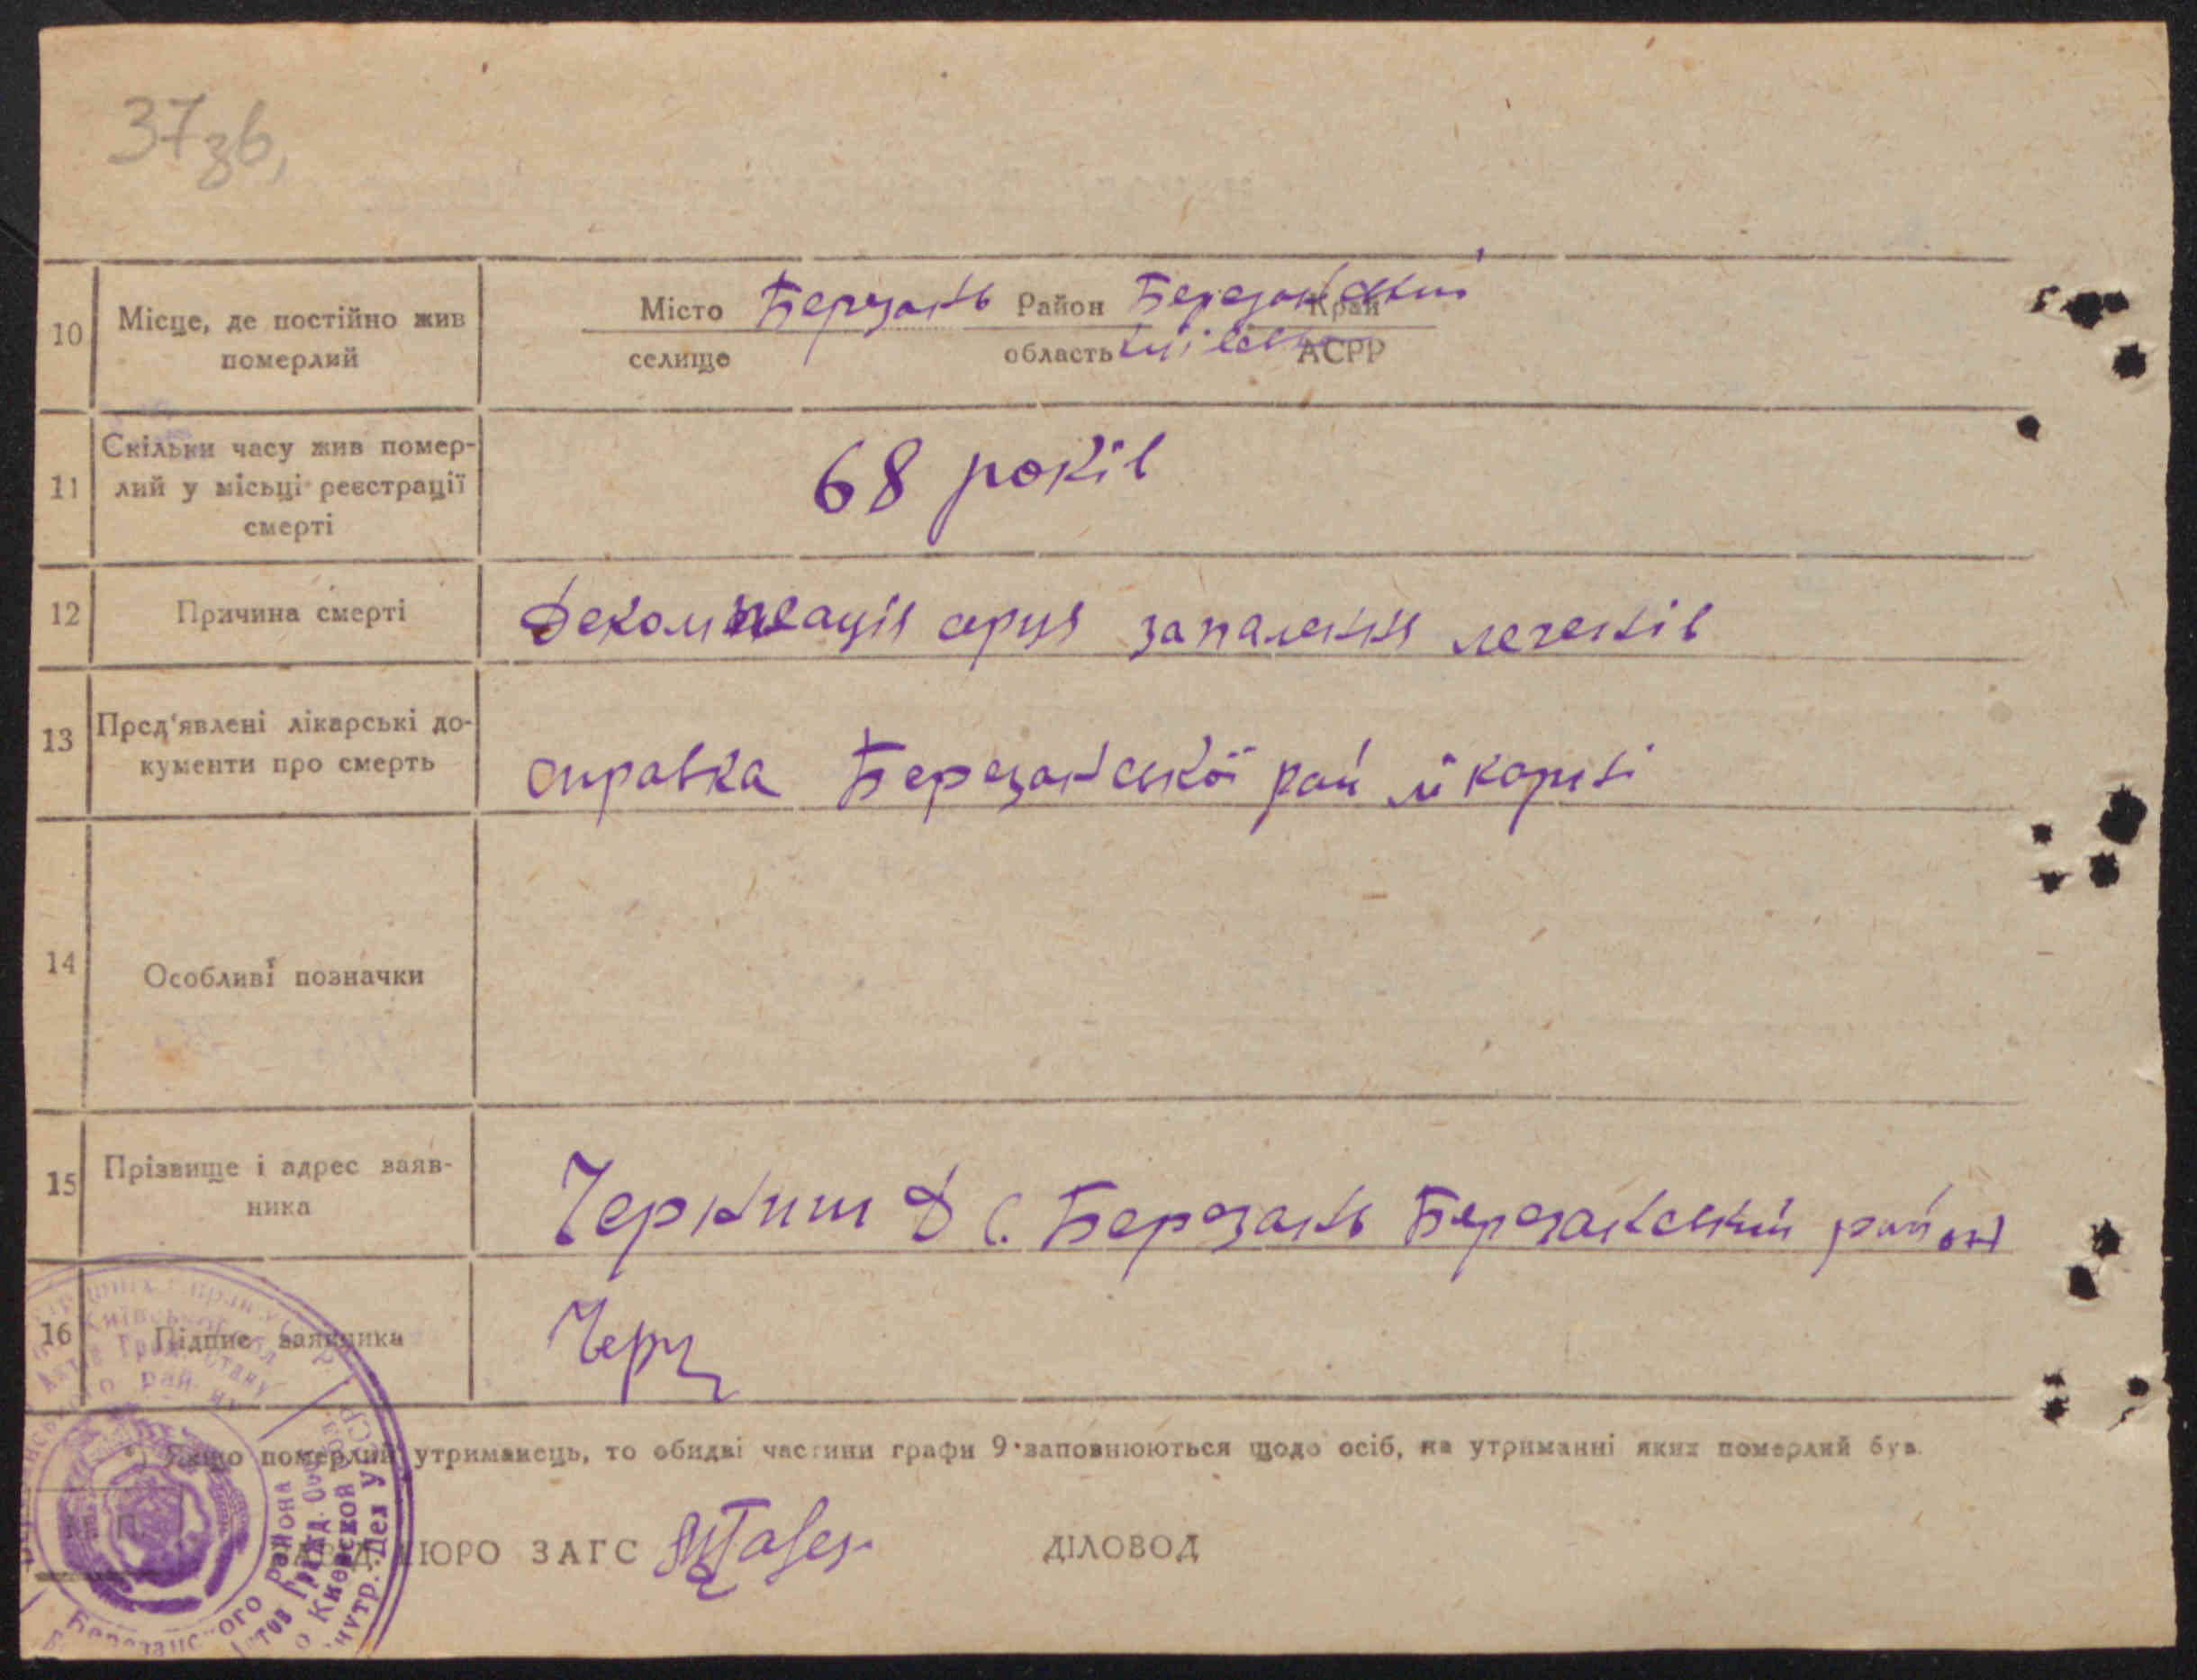 37зв,
10 Місце, де постійно жив померлий
Місто Березань Район Березанський Край
селище область Київська АСРР
11 Скільки часу жив помер-
лий у місьці реєстрації
смерті
68 років
12 Причина смерті
Декомпсація серця запалення легенів
13 Пред'явлені лікарські до-
кументи про смерть
справка Березанської рай лікарні
14 Особливі позначки
15 Прізвище і адрес заяв-
ника
Черниш Д с. Березань Березанський район
16 Підпис заявника
Черн
*) Якщо померлий утриманець, то обидві частини графи 9 заповнюються щодо осіб, на утриманні яких померлий був.
М. П.
ЗАВІД. БЮРО ЗАГС
ДІЛОВОД